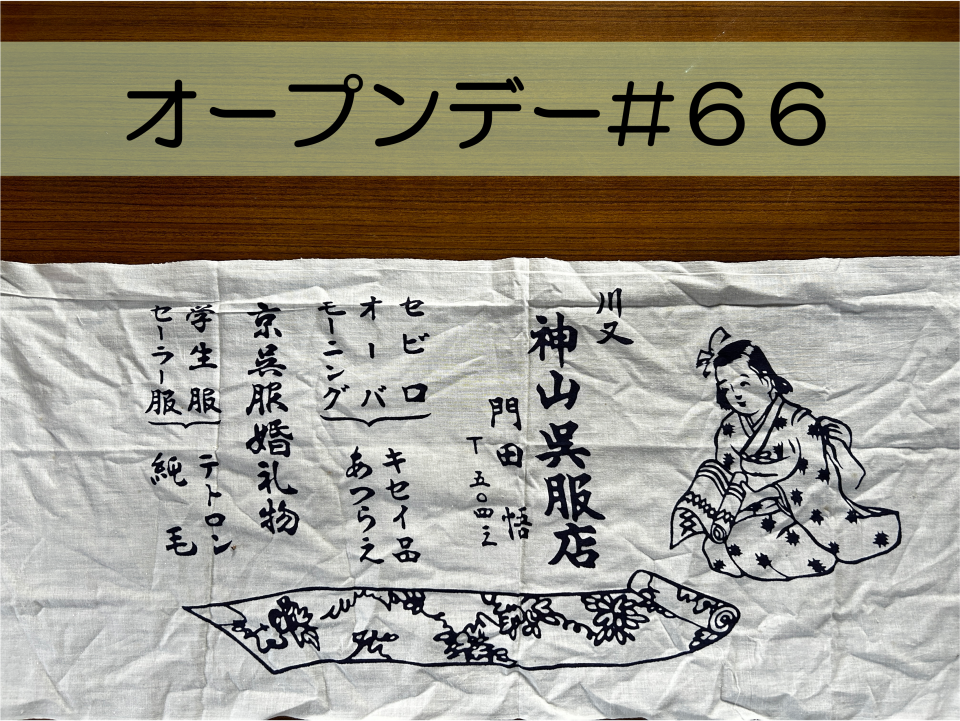 オープンデー#66
川又
神山呉服店
門田悟
T五〇四三
セビロ
オーバ
モーニング
キセイ品
あつらえ
京呉服婚礼物
学生服
セーラー服
テトロン
純毛